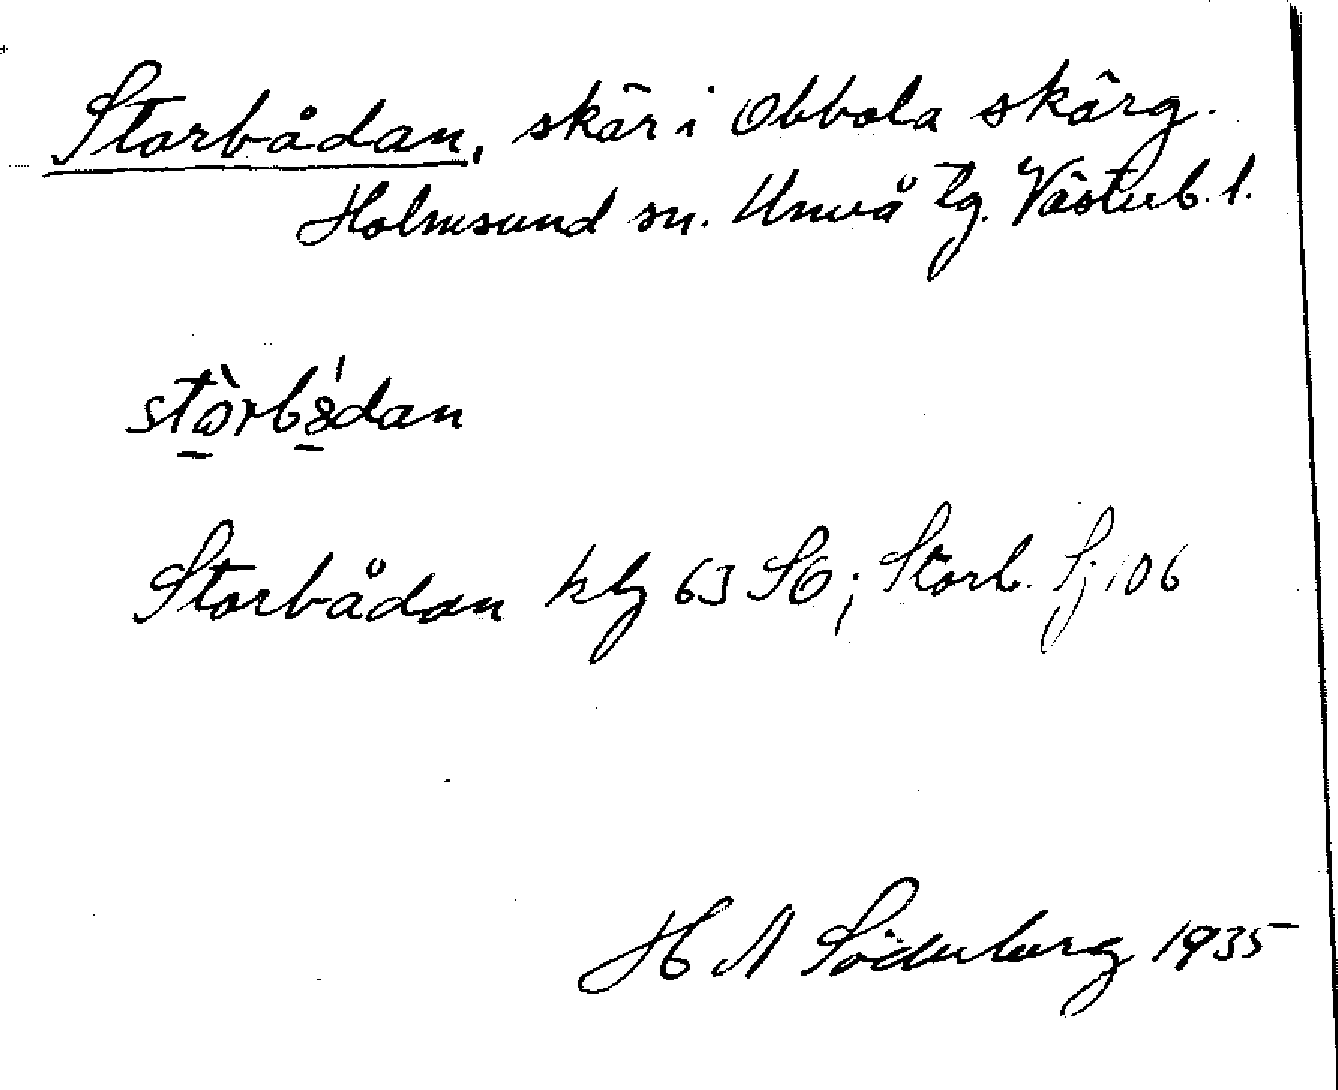 Storbådan, skär i Obbola skärg.
Holmsund sn. Umeå tg. Västerb. l.
stòrbådan
Storbådan kbl 63 SO; Storb. Sj 106
H A Söderberg 1935